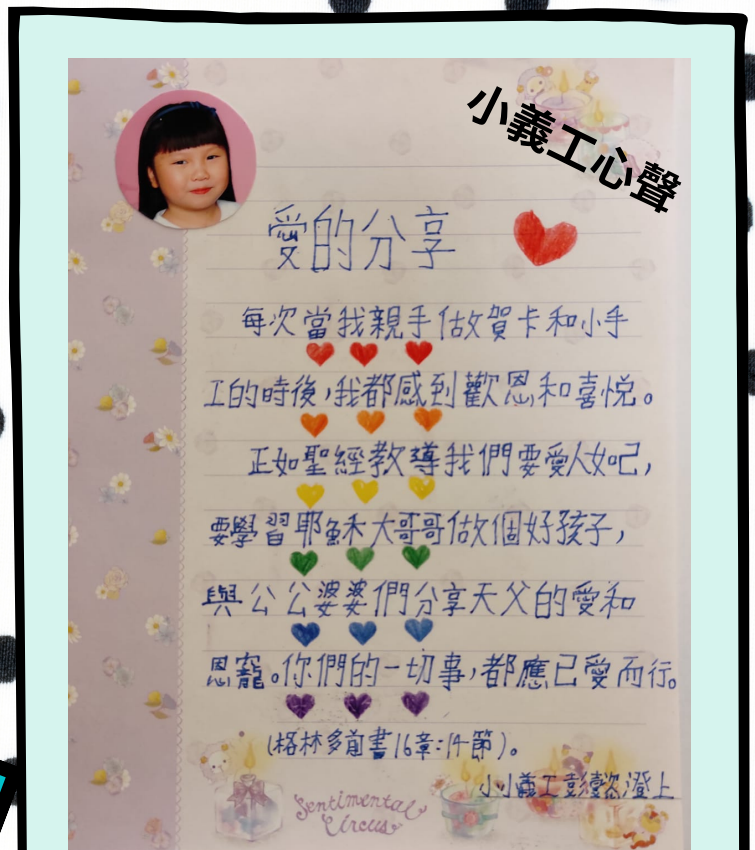 小義工心聲
愛的分享
每次當我親手做賀卡和小手
工的時後,我都感到歡恩和喜悅。
正如聖經教導我們要愛人如己,
要學習耶穌大哥哥做個好孩子,
與公公婆婆們分享天父的愛和
恩寵。你們的一切事,都應已愛而行。
(格林多前書16章:14節)。
小小義工彭懿澄上
Sentimental
Circus